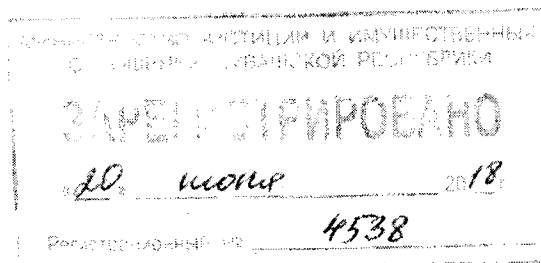 МИНИСТЕРСТВО ЮСТИЦИИ И ИМУЩЕСТВЕННЫХ
ОТНОШЕНИЙ ЧУВАШСКОЙ РЕСПУБЛИКИ
ЗАРЕГИСТРИРОВАНО
«20» июня 2018 г.
Регистрационный № 4538